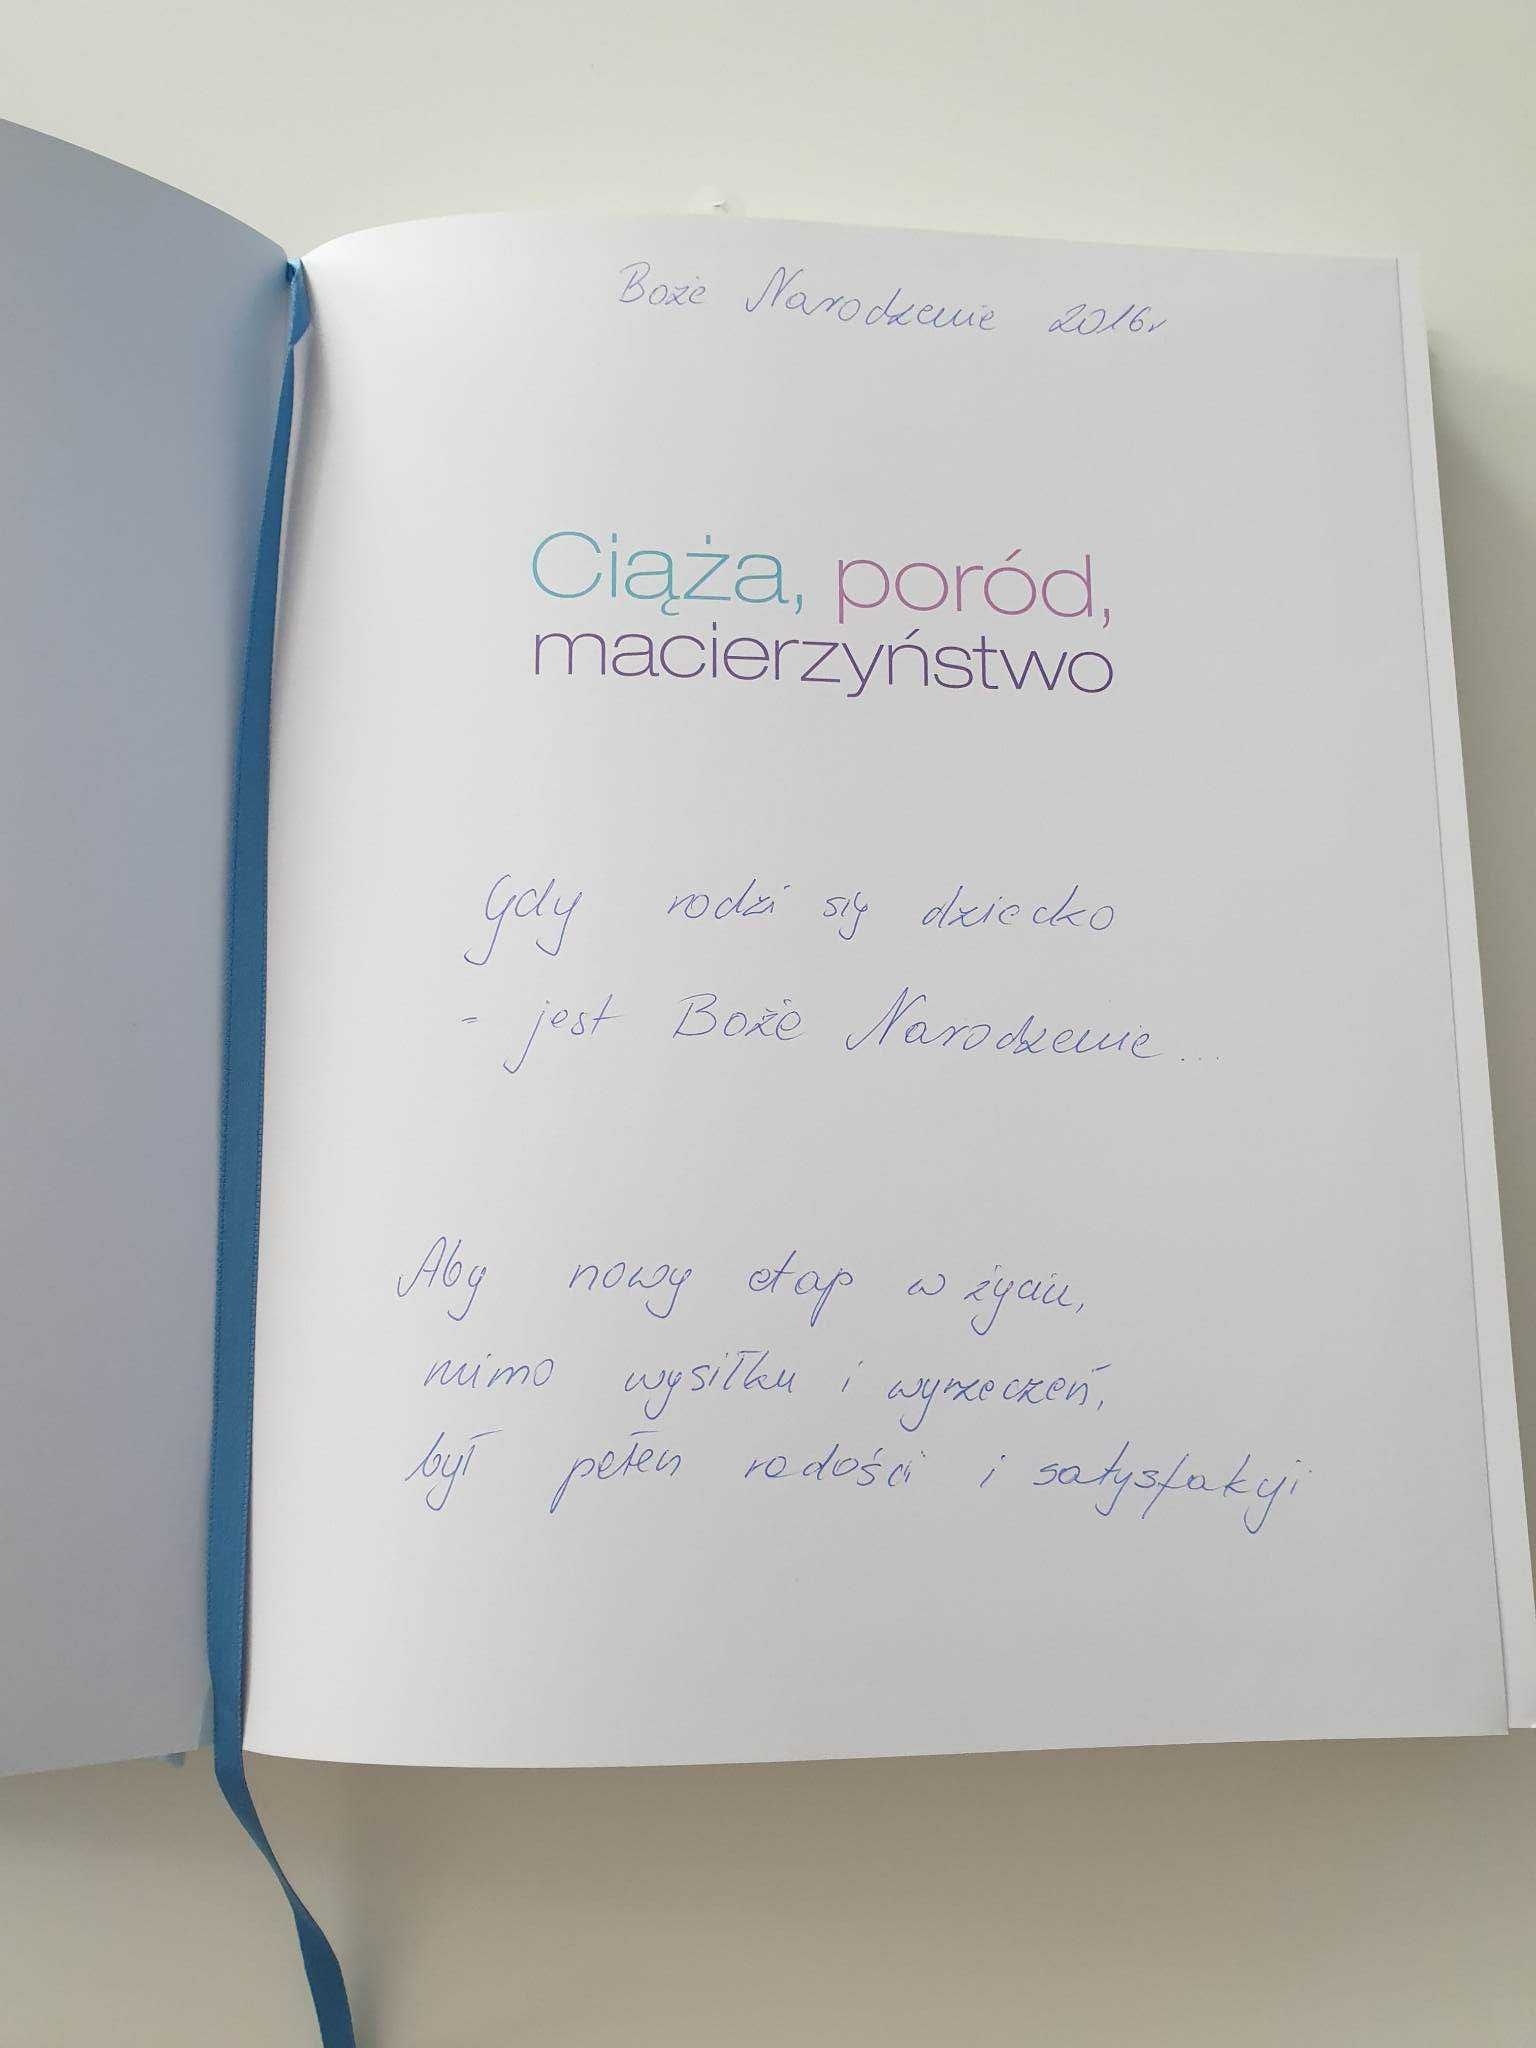 Boże Narodzenie 2016r
Ciąża, poród,
macierzyństwo
Gdy rodzi się dziecko
- jest Boże Narodzenie...
Aby nowy etap w życiu,
mimo wysiłku i wyrzeczeń,
był pełen radości i satysfakcji